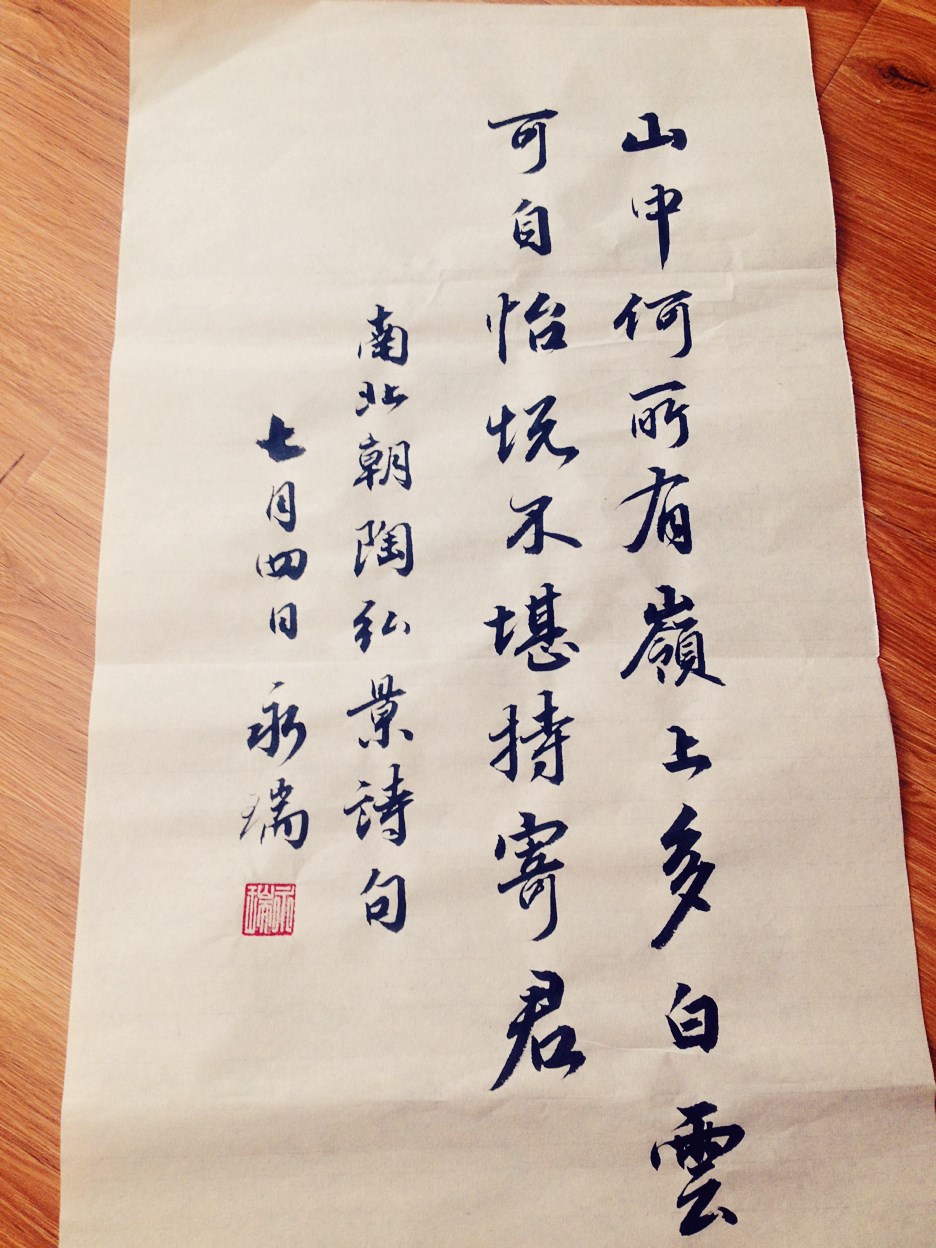 山中何所有嶺上多白雲
可自怡悅不堪持寄君
南北朝陶弘景詩句
七月四日永瑞
永瑞